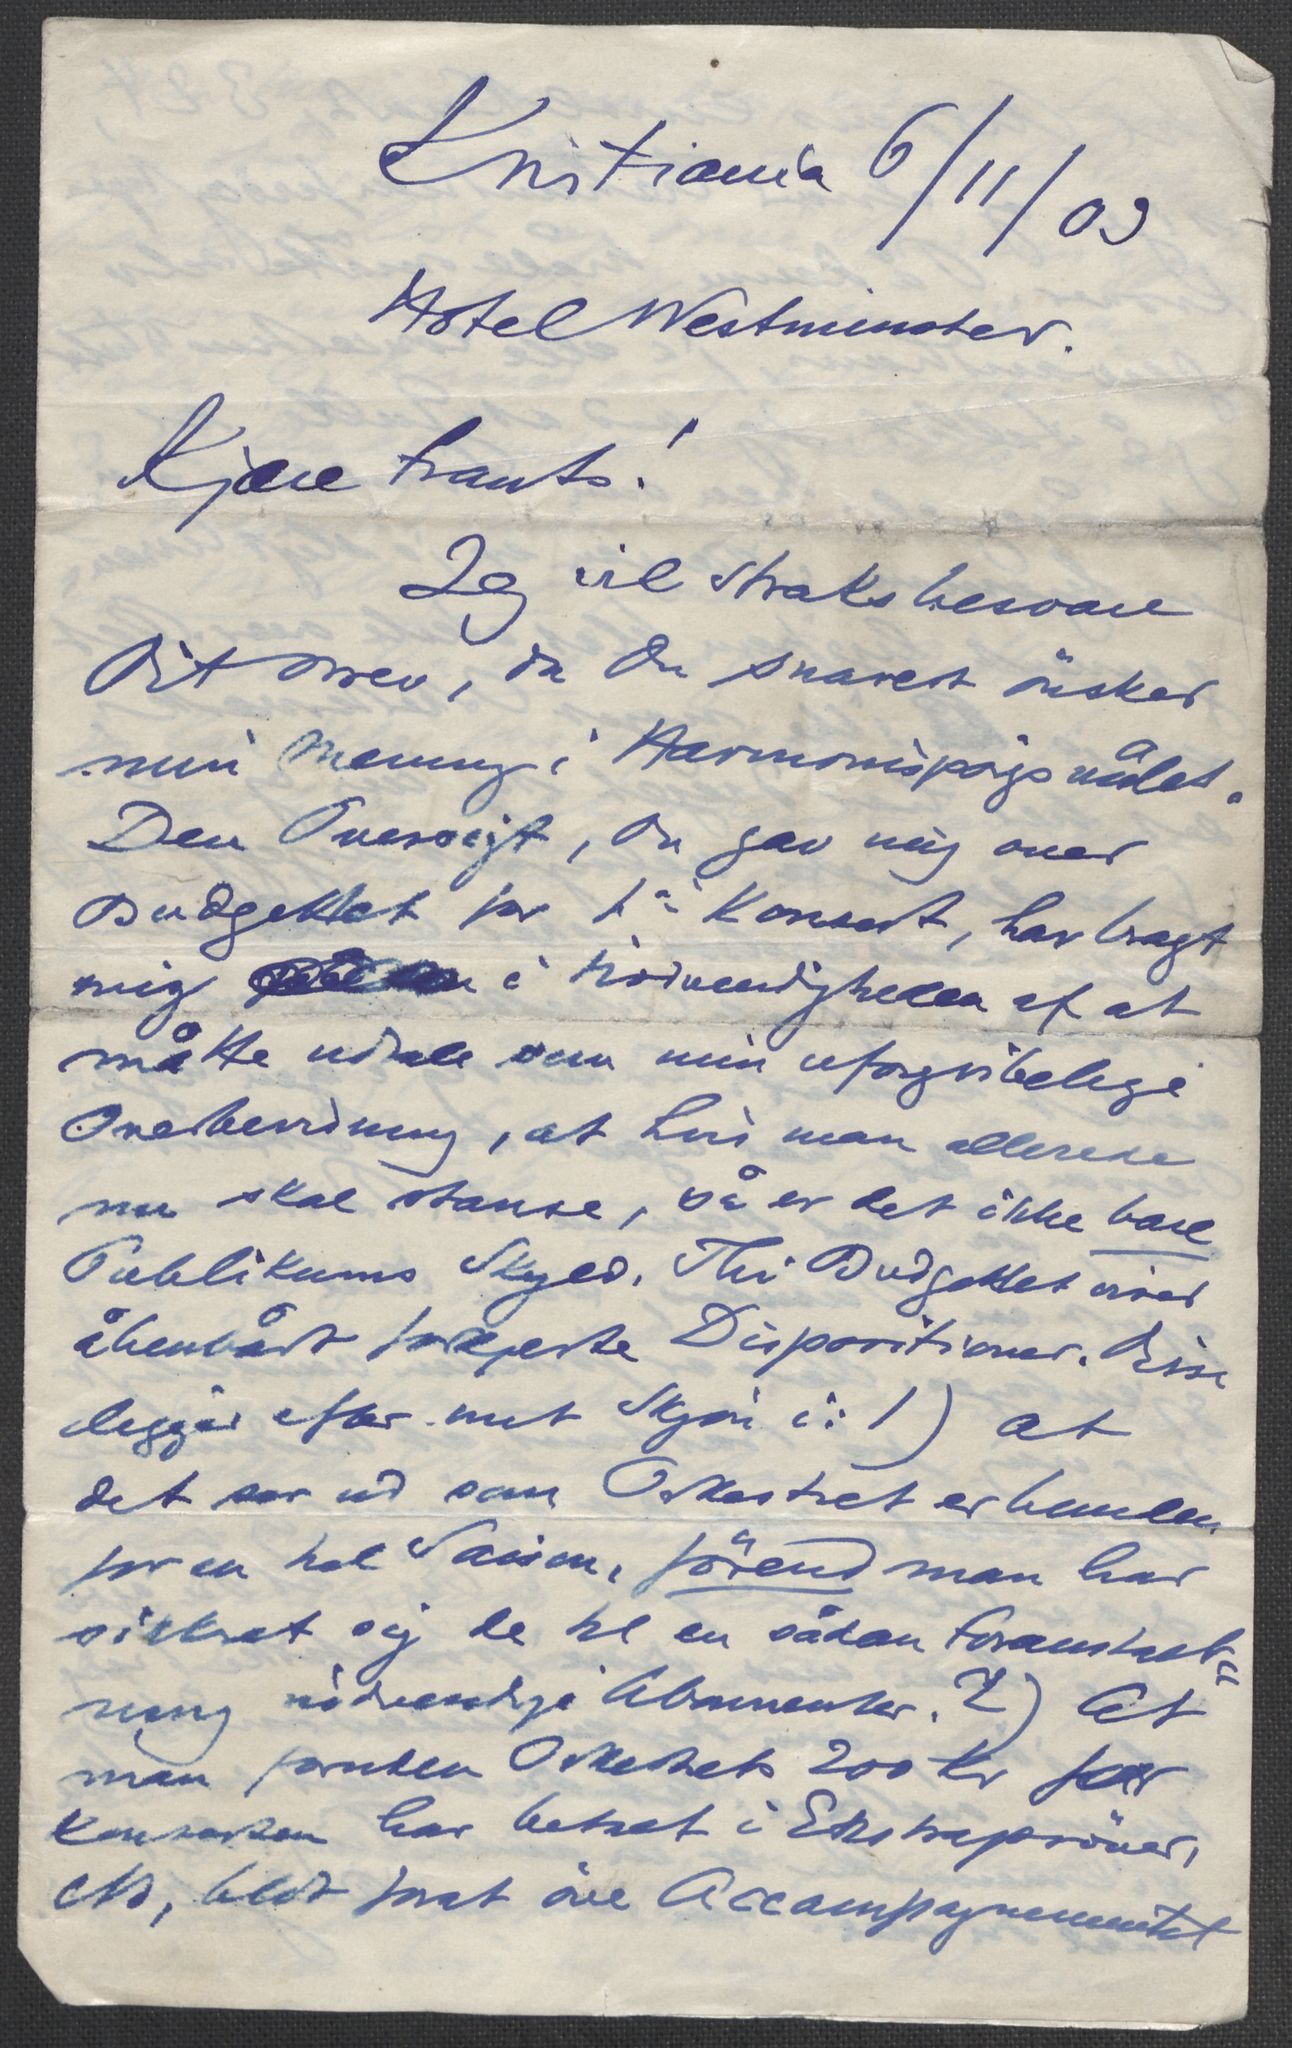 Kristiania 6/11/03
Hotel Westminster.
Kjære Frants!
Jeg vil straks besvare
Dit Brev, da Du snarest önsker
min Mening i Harmonispörgsmålet.
Den Oversigt, Du gav mig over
Budgettet for 1ste Konsert, har bragt
mig i Nödvendigheden af at
måtte udtale som min uforgribelige
Overbevisning, at hvis man allerede
nu skal stanse, så er det ikke bare
Publikums Skyld. Thi Budgettet viser
åbenbart forkjerte Dispositioner. Disse
ligger efter mit Skjön i: 1) at
det ser ud som Orkestret er bundet
for en hel Saison, förend man har
sikkret sig de til en sådan Foranstalt=
ning nödvendige Abonnenter. 2) At
man foruden Orkestrets 200 Kr for
Konserten har betalt i Ekstrapröver,
NB, blot forat öve Accompagnementet